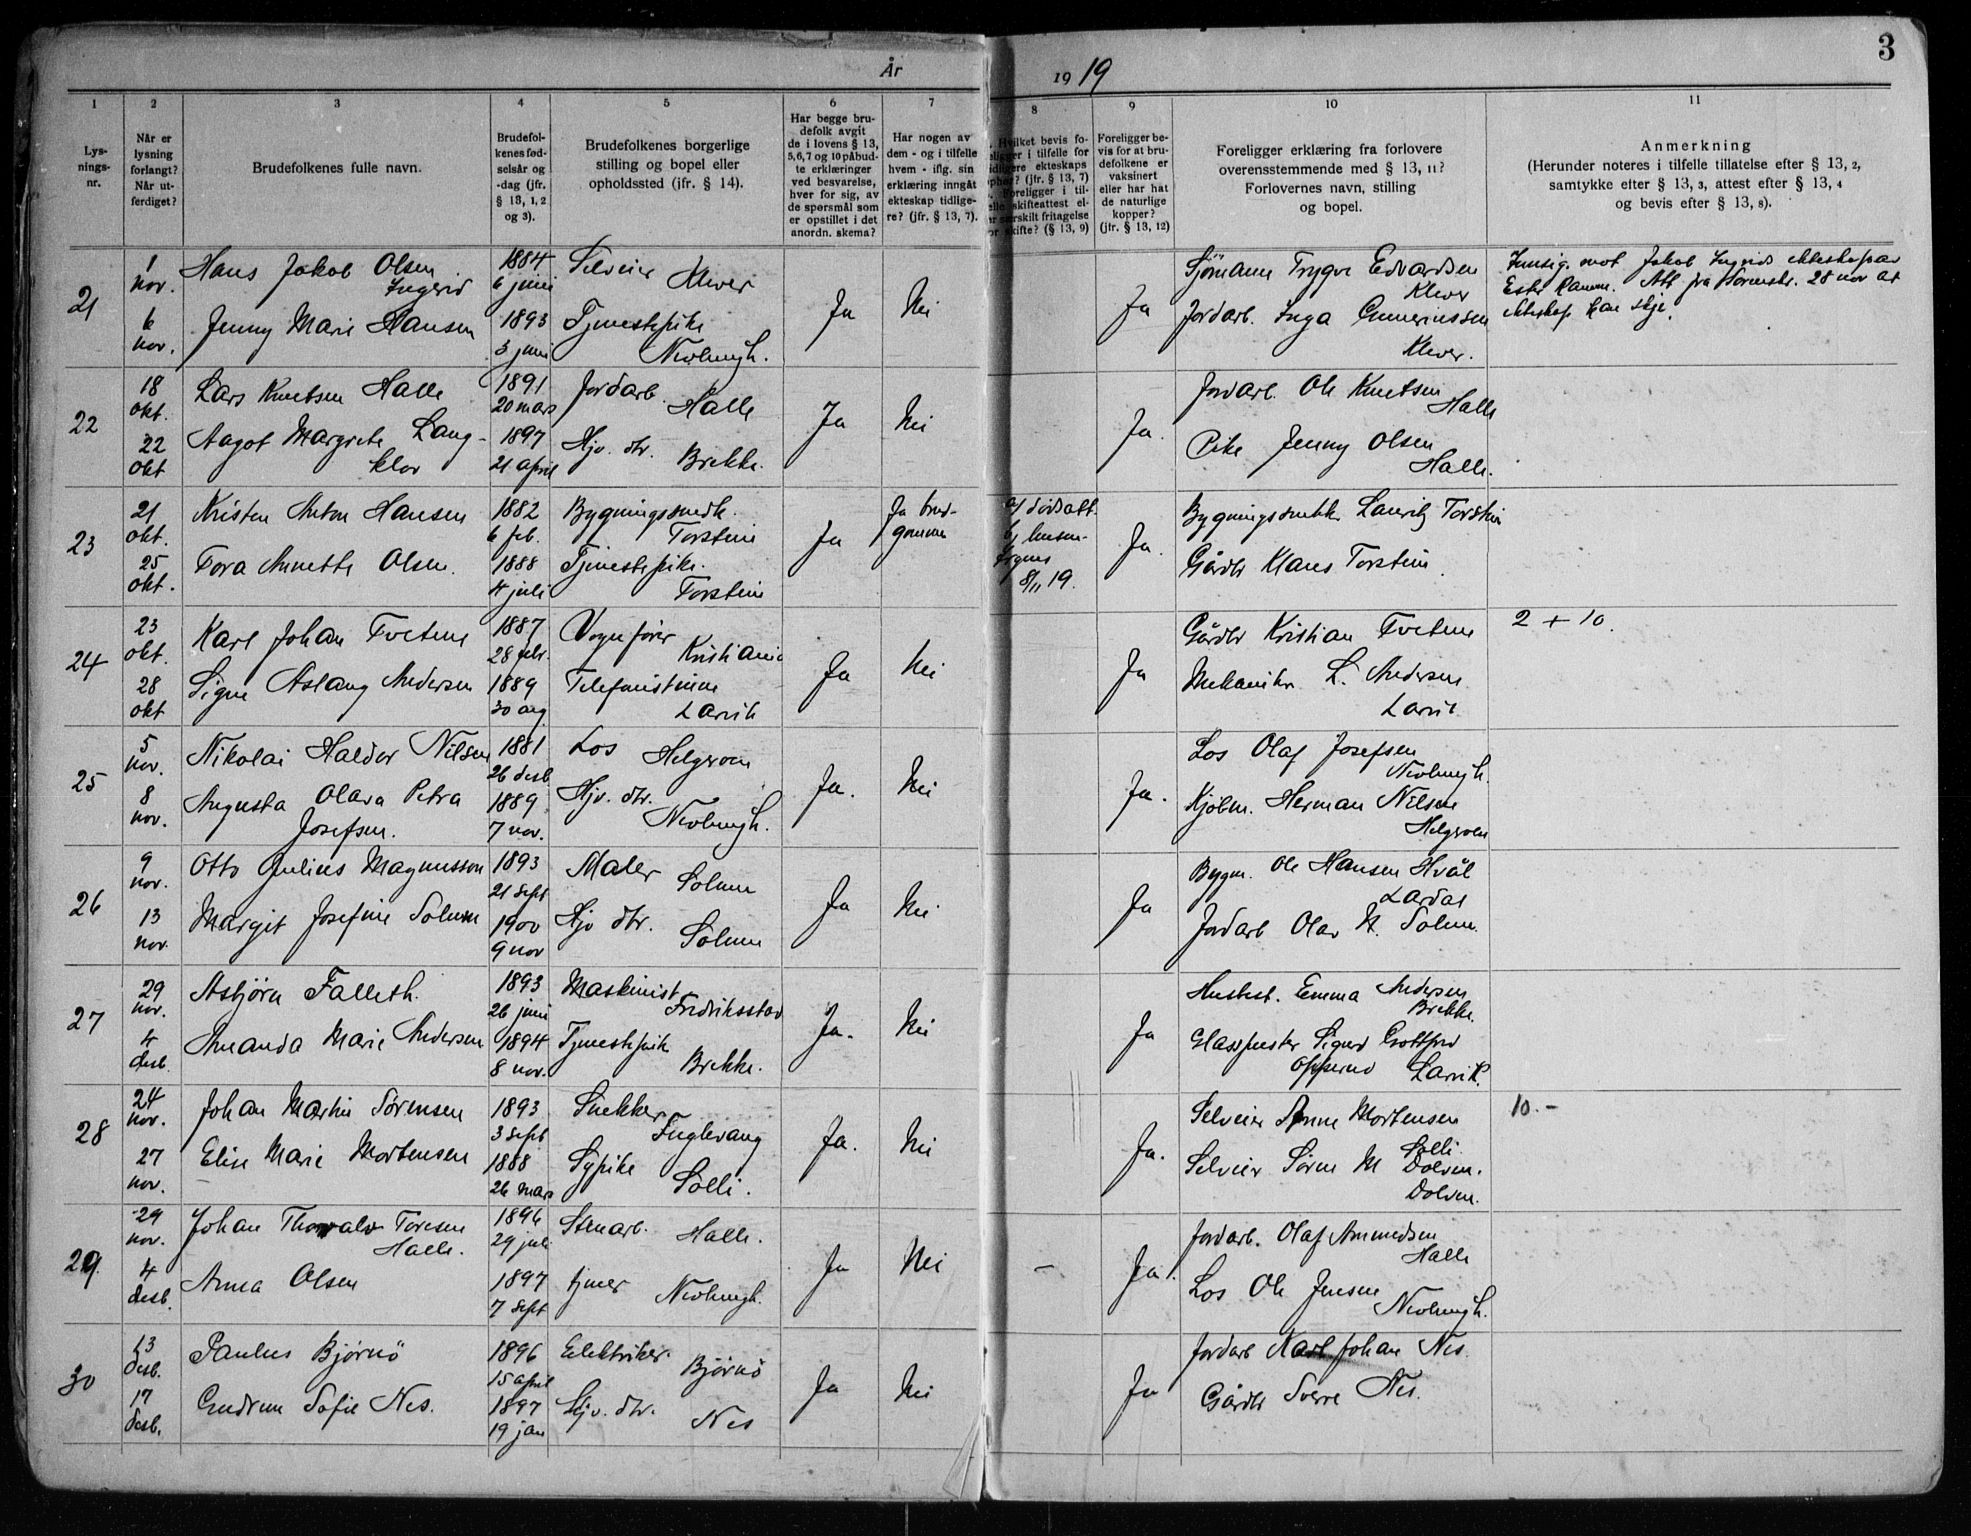 År 1919
3
1
2
3
4
5
6
7
8
9
10
11
Lys-
nings-
nr.
Når er
lysning
forlangt?
Når ut-
ferdiget?
Brudefolkenes fulle navn.
Brudefol-
kenes fød-
selsår og
-dag (jfr.
§ 13, 1, 2
og 3).
Brudefolkenes borgerlige
stilling og bopel eller
opholdssted (jfr. § 14).
Har begge bru-
defolk avgit
de i lovens § 13,
5,6,7 og 10 påbud-
te erklæringer
ved besvarelse,
hver for sig, av
de spørsmål som
er opstillet i det
anordn. skema?
Har nogen av
dem - og i tilfelle
hvem - iflg. sin
erklæring inngått
ekteskap tidlige-
re? (jfr. § 13, 7).
Hvilket bevis fo-
religger i tilfelle for
tidligere ekteskaps
ophør? (jfr. § 13, 7)
Foreligger i til-
felle skifteattest el-
ler særskilt fritagelse
for skifte? (§ 13, 9)
Foreligger be-
vis for at bru-
defolkene er
vaksinert
eller har hat
de naturlige
kopper?
(jfr. § 13, 12)
Foreligger erklæring fra forlovere
overensstemmende med § 13, 11?
Forlovernes navn, stilling
og bopel.
Anmerkning
(Herunder noteres i tilfelle tillatelse efter § 13, 2,
samtykke efter § 13, 3, attest efter § 13, 4
og bevis efter § 13, 8).
21
1 nov.
6 nov.
Hans Jakob Olsen
Ingerid
Jenny Marie Hansen
1884
6 juni
1893
3 juni
Selveier
Klever
Tjenestepike
Nevlungh.
Ja
Nei
Ja
Sjømann Trygve Edvardsen
Klever
Jordarb. Inga Gunerius­sen
Klever.
Jakob Ingerids ekteskap av
28 nov at
ekteskap kan skje.
22
18 okt.
22 okt
Lars Knutsen Halle
Aagot Margrete Lang-
klov
1891
20 mars
1897
21 april
Jordarb.
Halle
Hjv. dtr. Brekke.
Ja
Nei
Ja.
Jordarb. Ole Knutsen
Halle
Pike Jenny Olsen
Halle.
23
21 okt.
25 okt.
Kristen Anton Hansen
Tora Annette Olsen.
1882
6 feb.
1888
4 juli
Bygningssnedk.
Torstein
Tjenestepike.
Torstein
Ja
Ja brud-
gommen
a) dødsatt.
8/11 19.
Ja.
Bygningssnekk. Lauritz Torstein
Gårdbr Klaus Torstein.
24
23 okt.
28 okt
Karl Johan Tvetene
Signe Aslaug Andersen
1887
28 febr.
1889
30 aug.
Vognfører
Kristiania
Telefonistinne
Larvik
Ja
Nei
Ja
Gårdbr Kristian Tvetene
Mekaniker L. Andersen
Larvik.
2 + 10.
25
5 nov.
8 nov.
Nikolai Haldor Nilsen
Augusta Olava Petra
Josefsen.
1881
26 desb
1889
7 nov.
Los Helgeroen
Hjv. dtr.
Nevlungh.
Ja.
Nei
Ja.
Los Olaf Josefsen
Nevlungh.
Kjøbm. Herman Nilsen
Helgeroen
26
9 nov.
13 nov.
Otto Julius Magnusson
Margit Josefine Solum
1893
21 sept
1900
9 nov
Maler Solum
Hjv dtr. Solum
Ja
Nei
Ja
Bygm. Ole Hansen Hvål
Lardal
Jordarb Olav N. Solum.
27
29 nov.
4 desb.
Asbjørn Falleth.
Amanda Marie Andersen
1893
26 juni
1894
8 nov.
Maskinist
Fredriksstad
Tjenestepik
Brekke.
Ja.
Nei
Ja
Husbest. Emma Andersen
Brekke.
Glasspuster Sigurd Gottfred
Larvik.
28
24 nov.
27 nov.
Johan Martin Sørensen
Elise Marie Mortensen
1893
3 sept
1888
26 mars
Snekker
Fuglevang
Sypike Solli.
Ja.
Nei
Ja.
Selveier Mortensen
Solli
Selveier Søren M Dolven.
Dolven.
10.-
29.
29 nov.
4 desb.
Johan Thorvald Toresen
Halle.
Anna Olsen
1896
29 juli
1897
7 sept
Stenarb. Halle.
tjener Nevlungh.
Ja
Nei
-
Ja.
Jordarb. Olaf Ammedsen
Halle
Los Ole Jensen
Nevlungh.
30
13 desb.
17 desb.
Paulus Bjørnö
Gudrun Sofie Nes.
1896
15 april
1897
19 jan
Elektriker.
Bjørnö
Hjv. dtr. Nes
Ja
Nei
Ja
Jordarb Karl Johan Nes.
Gårdbr Sverre Nes.